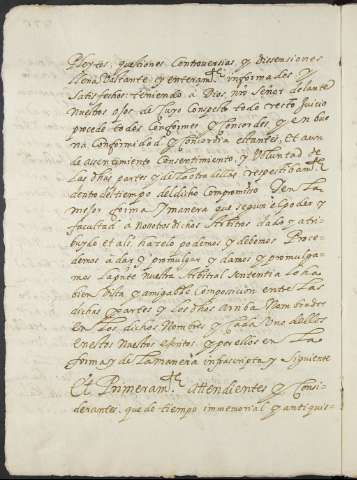 Pleytos, questiones Controversias, y Dissensiones
llena, bastante, y enteram.te informados y
satisfechos: teniendo à Dios, nro Señor delante
nuestros ojos de Cuyo Conspecto todo recto Juicio
procede todos Conformes y Concordes y en bue
na Conformidad y Concordia estantes, et aun
de assentimiento Consentimiento, y Voluntad de
las dhas partes y de la otra dellas respectivam.te
dentro del tiempo del dicho Compromiso Y en la
mejor forma y manera que segun el poder y
facultad a Nosotros dichos Arbitros dado y atri-
buydo et als. hazerlo podemos y debemos Proce-
demos à dar, y promulgar y damos y promulga-
mos la pnte nuestra Arbitral Sentencia Loha
bien vista y amigable Composicion entre Las
dichas partes y los dhos arriba Nombrados
en Los dichos Nombres y Cada Uno de ellos
en estos Nuestro escritos y por ellos en La
forma y de la manera infrascripta y siguiente
Et Primeram.te attendientes y Consi-
derantes, que de tiempo immemorial y antiquis-